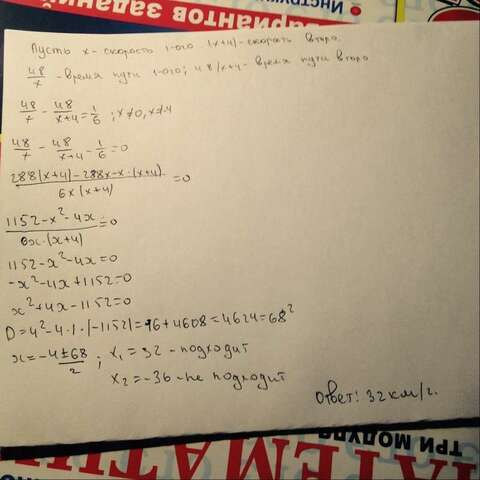 • Инструкци
вариантов заданий
Пусть х - скорость 1-ого (х+4) - скорость второ.
48/х - время пути 1-ого; 48/х+4 - время пути второ
48/х - 48/х+4 = 1/6 ; х≠0, х≠4
48/х - 48/х+4 - 1/6 = 0
288(х+4)-288х-х·(х+4)/6х(х+4) = 0
1152-х²-4х/6х·(х+4) = 0
1152-х²-4х=0
-х²-4х+1152=0
х²+4х-1152=0
D=4²-4·1·(-1152)=16+4608=4624=68²
х=-4±68/2 ; х₁=32 - подходит
х₂=-36 - не подходит
Ответ: 32 км/ч.
ТРИ МОДУЛ
АТЕМАТИ